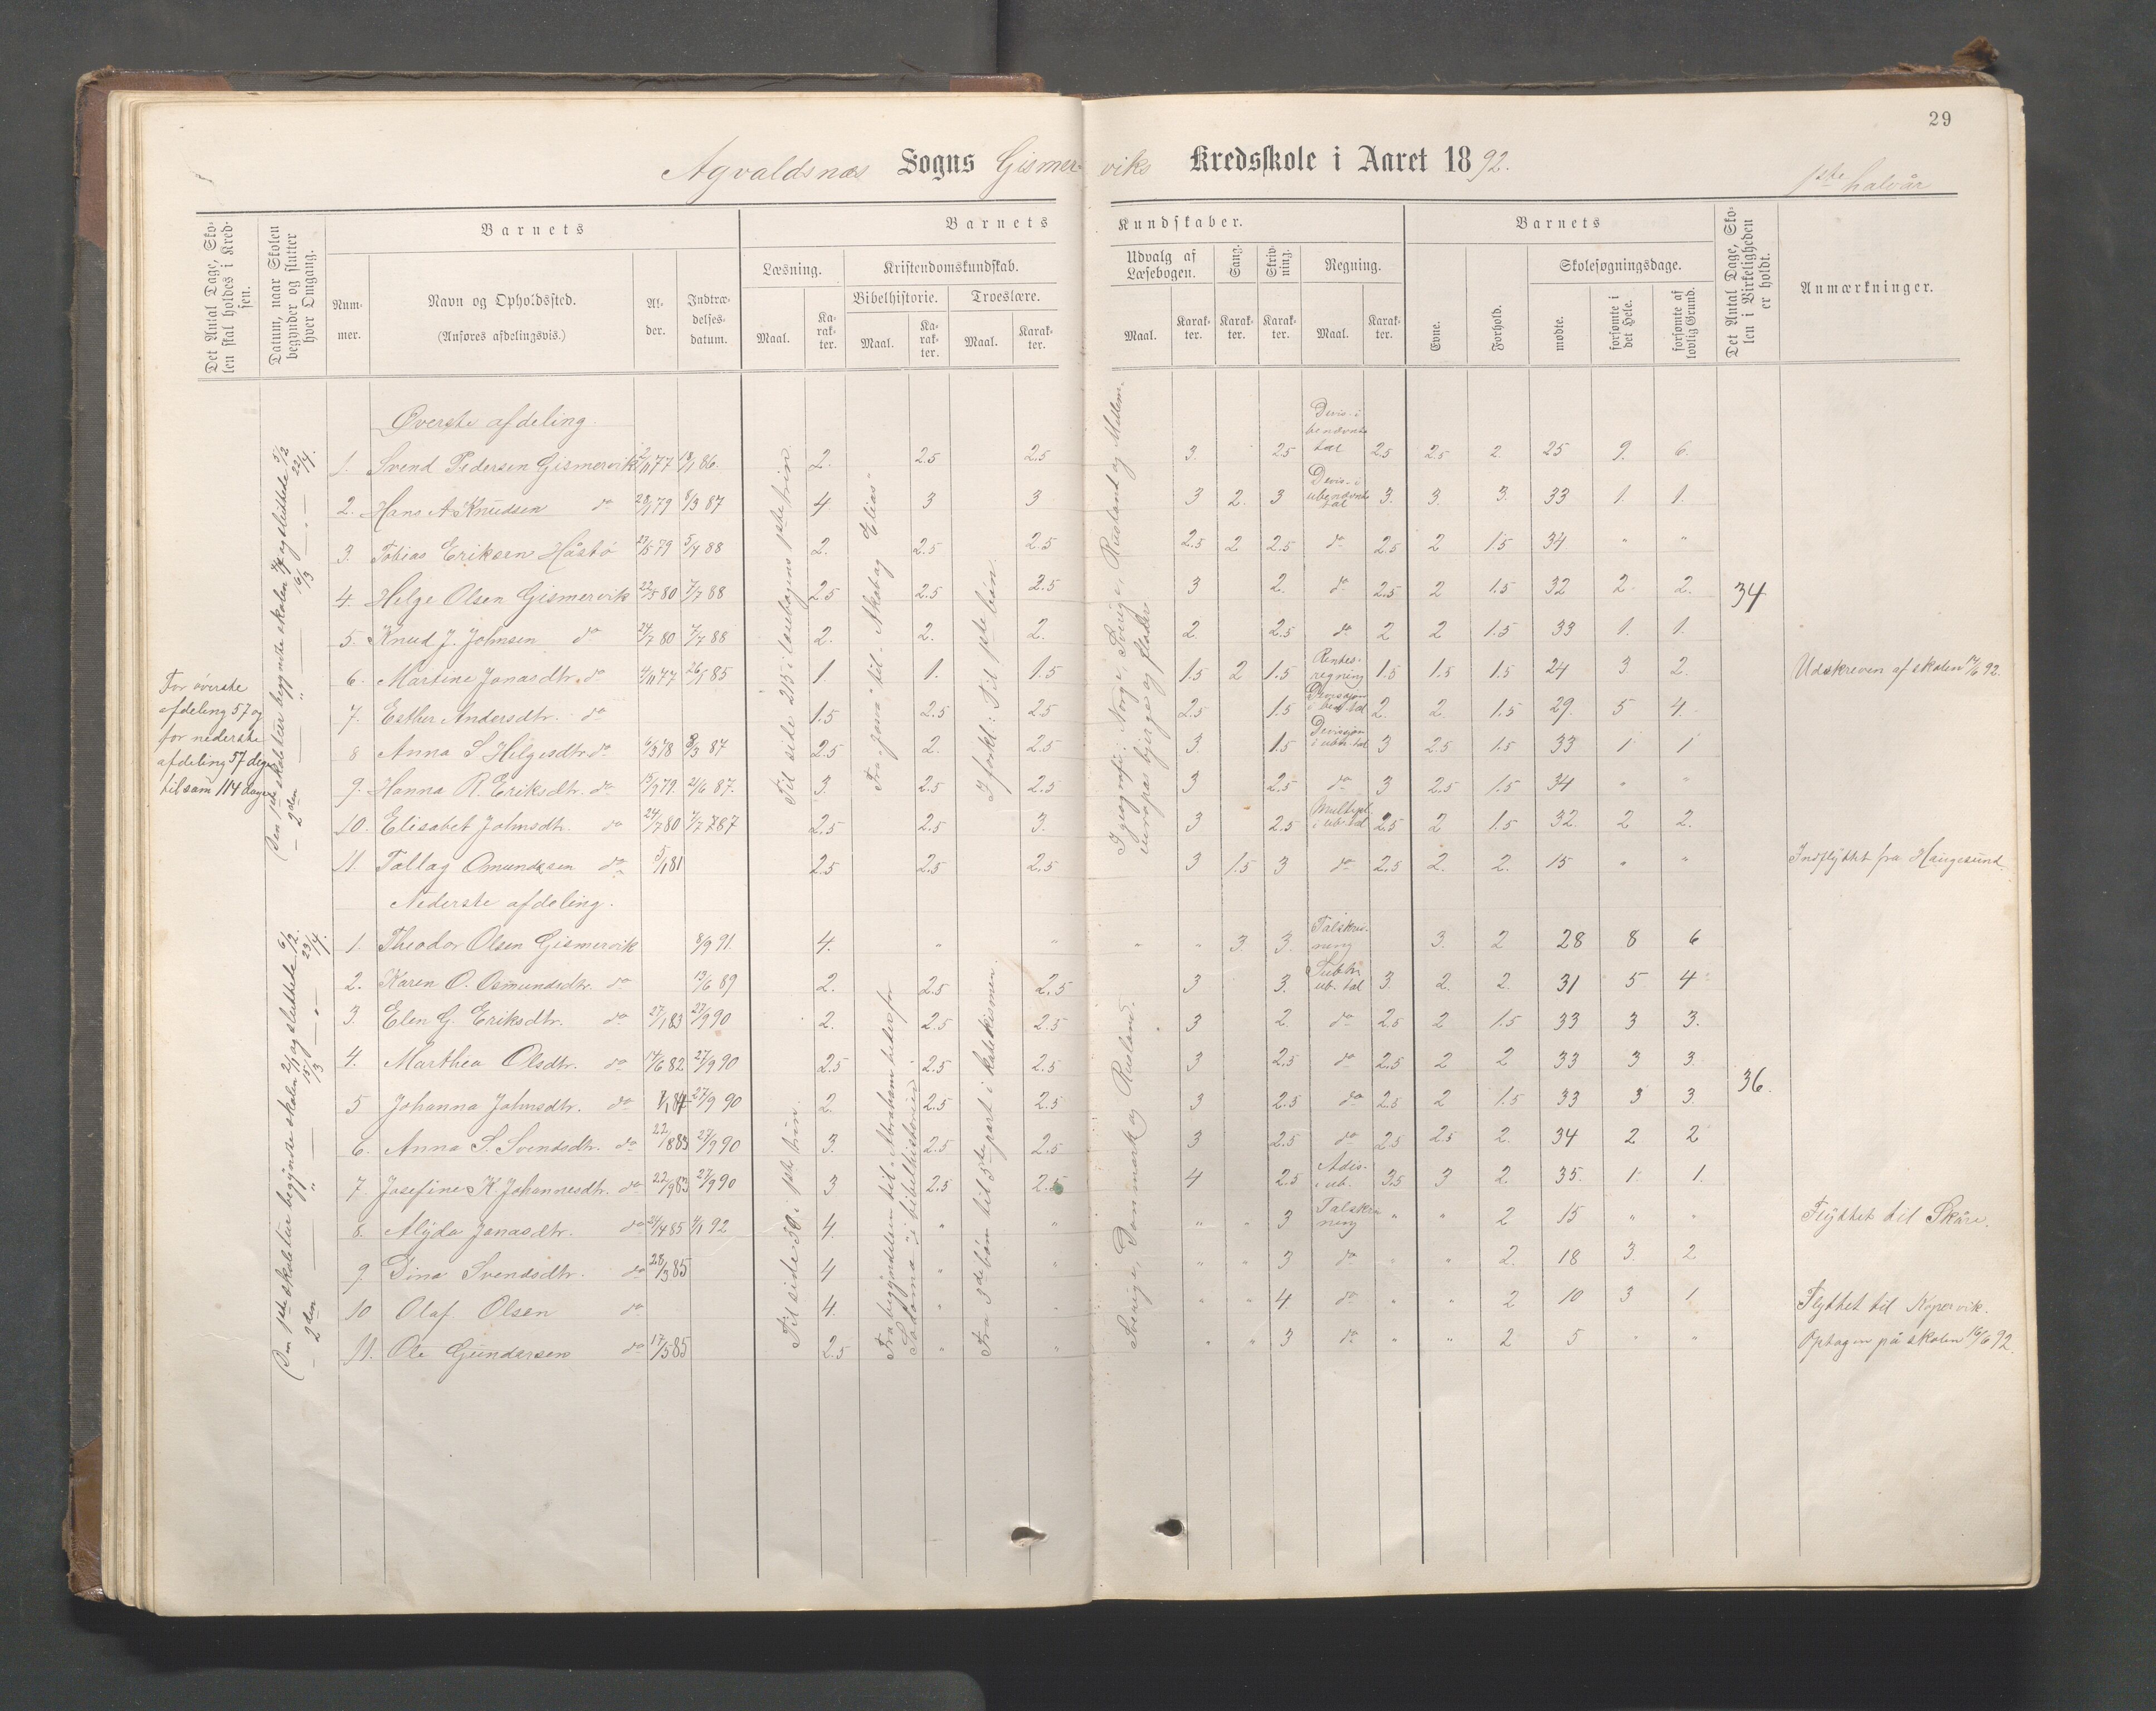 29
Agvaldsnæs Sogns Gismerviks Kredsskole i Aaret 1892. 1ste halvår
Det Antal Dage, Skolen skal holdes i Kredsen.
Datum, naar Skolen begynder og slutter hver Omgang.
Barnets
Nummer.
Navn og Opholdssted.
(Anføres afdelingsvis.)
Alder.
Indtrædelsesdatum.
Barnets Kundskaber.
Læsning.
Maal.
Karakter.
Kristendomskundskab.
Bibelhistorie.
Maal.
Karakter.
Troeslære.
Maal.
Karakter.
Udvalg af Læsebogen.
Maal.
Karakter.
Sang.
Karakter.
Skrivning.
Karakter.
Regning.
Maal.
Karakter.
Barnets
Evne.
Forhold.
Skolesøgningsdage.
mødte.
forsømte i det Hele.
forsømte af lovlig Grund.
Det Antal Dage, Skolen i Virkeligheden er holdt.
Anmærkninger.
For øverste
afdeling 57 og
for nederste
afdeling 57 dage
tilsam 114 dager
Øverste afdeling.
1. Svend Pedersen Gismervik 2/11 77 18/1 86. 2. 2.5 2.5 3. 2.5 Devis. i benævnte tal 2.5 2.5 2. 25 9. 6.
2. Hans A Knudsen do 28/1 79 8/3 87 4 3 3 3 2. 3 Devis. i ubenævnte tal 3. 3. 3. 33 1. 1.
3. Tobias Eriksen Håstø 27/5 79 5/4 88 2. 2.5 2.5 2.5 2 2.5 do 2.5 2 1.5 34 " "
4. Helge Olsen Gismervik 22/5 80 7/7 88 2.5 2.5 2.5 3 2. do 2.5 2 1.5 32 2. 2. 34
5. Knud J. Johnsen do 24/7 80 7/7 88 2. 2. 2. 2. 2.5 do 2 2 1.5 33 1. 1.
6. Martine Jonasdtr. do 4/11 77 26/1 85 1. 1. 1.5 1.5 2 1.5 Rentesregning 1.5 1.5 1.5 24 3 2. Udskreven af skolen 17/6 92.
7. Esther Andersdtr. do 1.5 2.5 2.5 2.5 1.5 2. 2. 1.5 29. 5 4.
8 Anna S Helgesdtr do 6/3 78 8/3 87 2.5 2. 2.5 3. 1.5 Devisjon i ubn. tal 3 2.5 1.5 33 1 1
9. Hanna R. Eriksdtr. do 15/9 79. 21/6 87. 3. 2.5 2.5 3 2.5 do 3 2.5 1.5 34 " "
10. Elisabet Johnsdtr. do 24/7 80 7/7 87 2.5 2.5 3. 3 2.5 Multipl. i ub. tal 2.5 2 1.5 32. 2 2.
11. Tallag Omundsen do 5/1 81 2.5 2.5 2.5 3 1.5 3 do 2.5 2. 2. 15 " " Indflyttet fra Haugesund
Den 1ste skoletur begyndte skolen
Til side 215 i læsebogens 1ste trin.
Fra "Josva" til "Akab og Elias"
I forkl: Til 1ste bøn.
I geografi: Norge, Sverige, Rusland og Mellemeuropas bjerge og floder
Nederste afdeling.
1. Theodor Olsen Gismervik 8/9 91. 4. " " " " 3. 3. 3. 2 28 8 6
2. Karen O. Osmundsdtr. do 13/6 89 2. 2.5 2.5 3 3. Subtr. ub. tal 3. 2. 2. 31 5 4
3. Elen G. Eriksdtr. do 27/1 83 27/9 90 2. 2.5 2.5 3 2. do 2.5 2 1.5 33 3 3.
4. Marthea Olsdtr. do 14/6 82 27/9 90 2.5 2.5 2.5 3 2.5 do 2.5 2 2 33 3 3.
5 Johanna Johnsdtr. do 27/9 90 2. 2.5 2.5 3 2.5 do 2.5 2 1.5 33 3 3. 36.
6. Anna S. Svendsdtr. do 22/8 83 27/9 90 3. 2.5 2.5 3 2.5 do 2.5 2.5 2. 34 2 2
7. Josefine K. Johannesdtr. do 22/9 83 27/9 90 3 2.5 2.5 4 2.5 Adis. i ub. 3.5 3 2. 35. 1. 1.
8. Alyda Jonasdtr. do 21/4 85 4/1 92 4. " " " " 3 Talskrivning " " 2 15 " " Flyttet til Skåre.
9. Dina Svendsdtr. do 28/3 85 4 " " " " 3 do " " 2. 18 3. 2
10 Olaf Olsen do 4. " " " " 4. do " " 2 10 3 1 Flyttet til Kopervik.
11. Ole Gundersen do 17/5 85 2.5 " " " " 3 do " " 2 5 " " Optagen på skolen 16/6 92.
Den 1ste skoletur begyndte skolen 2/1 og sluttede 6/2.
2den 15/3 23/4.
Til side 50 i 1ste trin.
Fra begyndelsen til "Abraham beder for Sodoma" i bibelhistorien.
Fra 3die bøn til 5te part i katekismen.
Sverige, Danmark og Rusland.